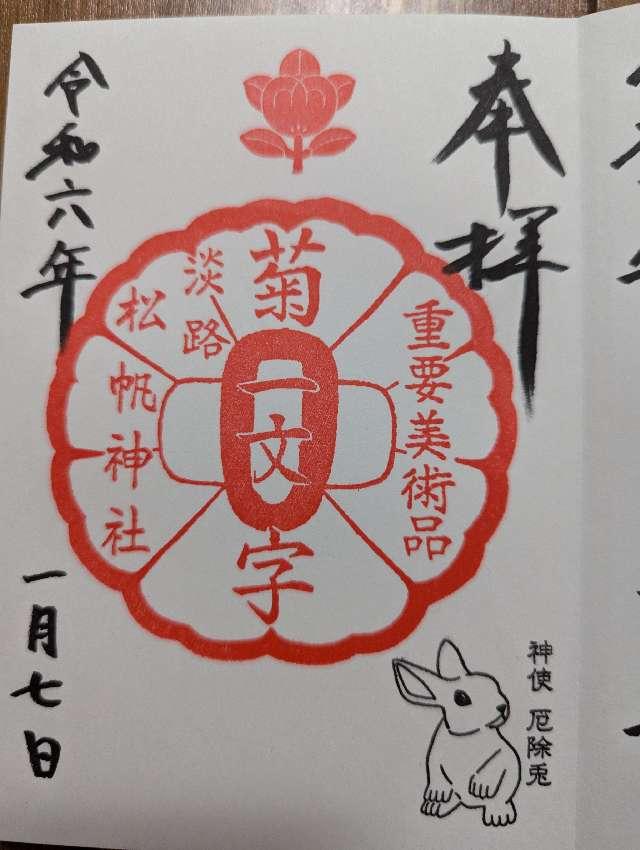 奉拝
重要美術品
菊一文字
淡路
松帆神社
令和六年
一月七日
神使 厄除兎